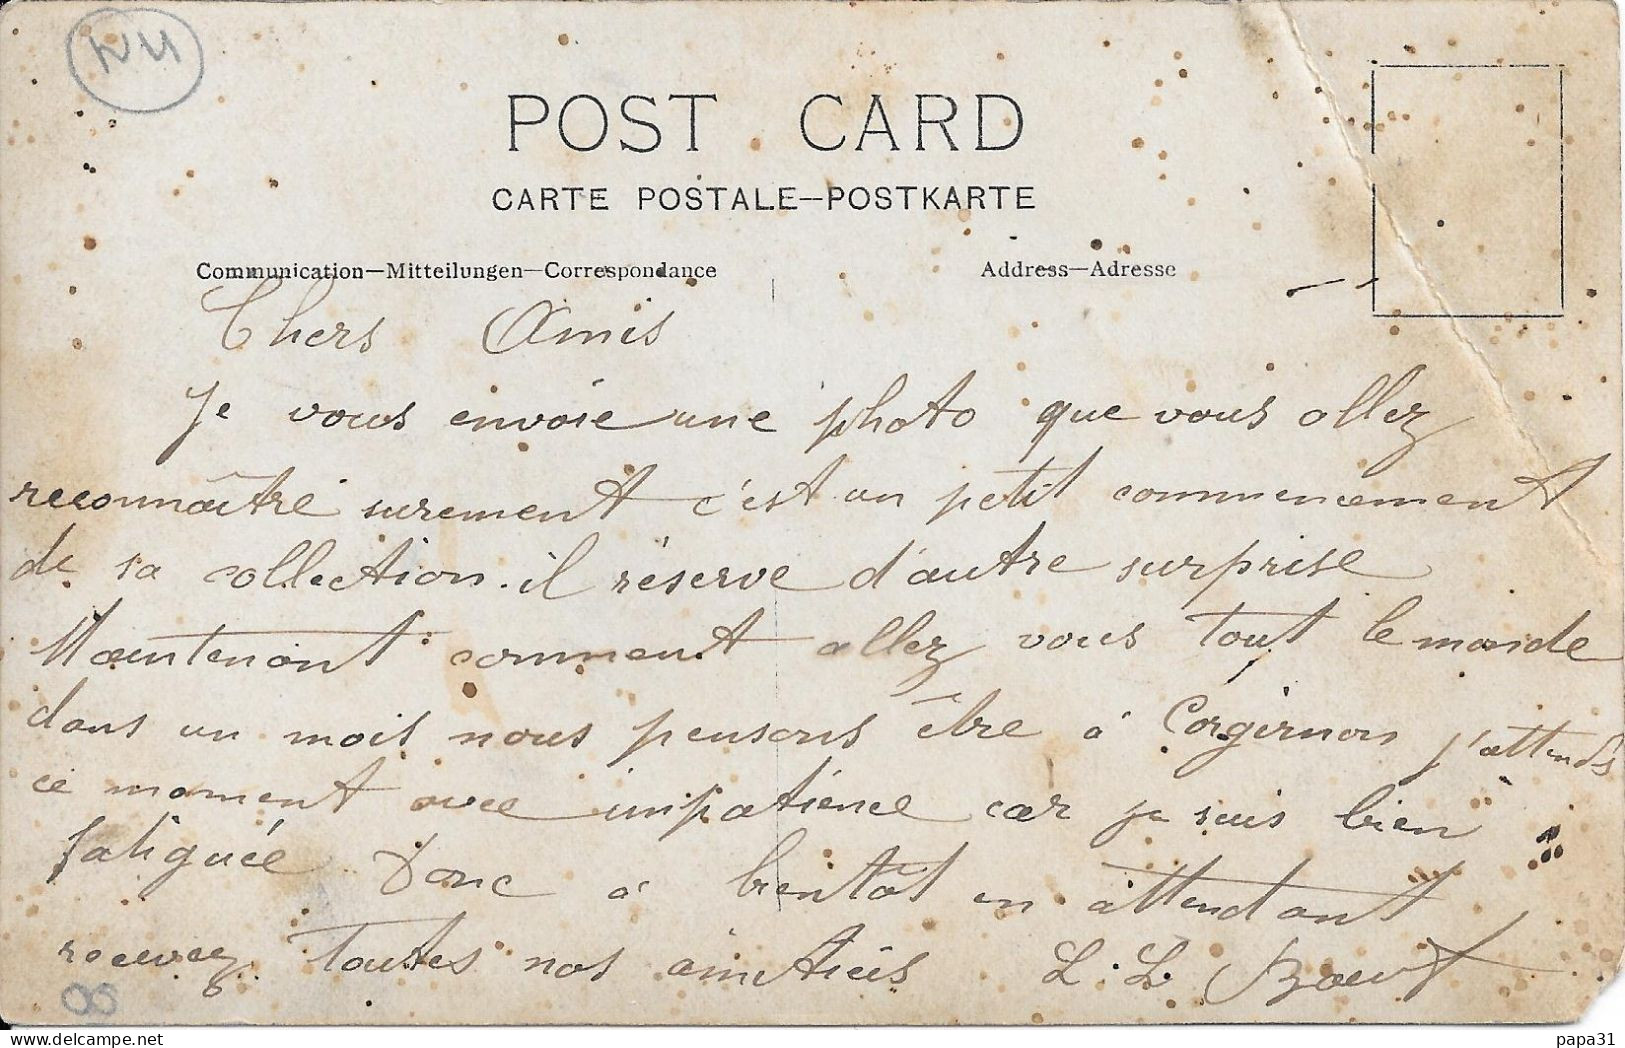 POST CARD
CARTE POSTALE—POSTKARTE
Communication—Mitteilungen—Correspondance
Address—Adresse
Chers Amis
Je vous envoie une photo que vous allez
reconnaître surement c'est un petit commencement
de sa collection. il réserve d'autre surprise
Maintenant comment allez vous tout le monde
dans un mois nous pensons être à Corgirnon j'attends
ce moment avec impatience car je suis bien
fatiguée Donc à bientôt en attendant
recevez toutes nos amitiés L. L.
papa31